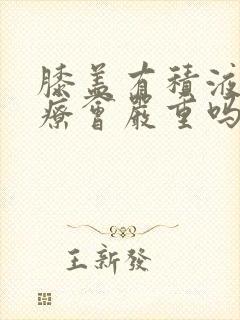 膝盖有積液
療會嚴重吗
王新發